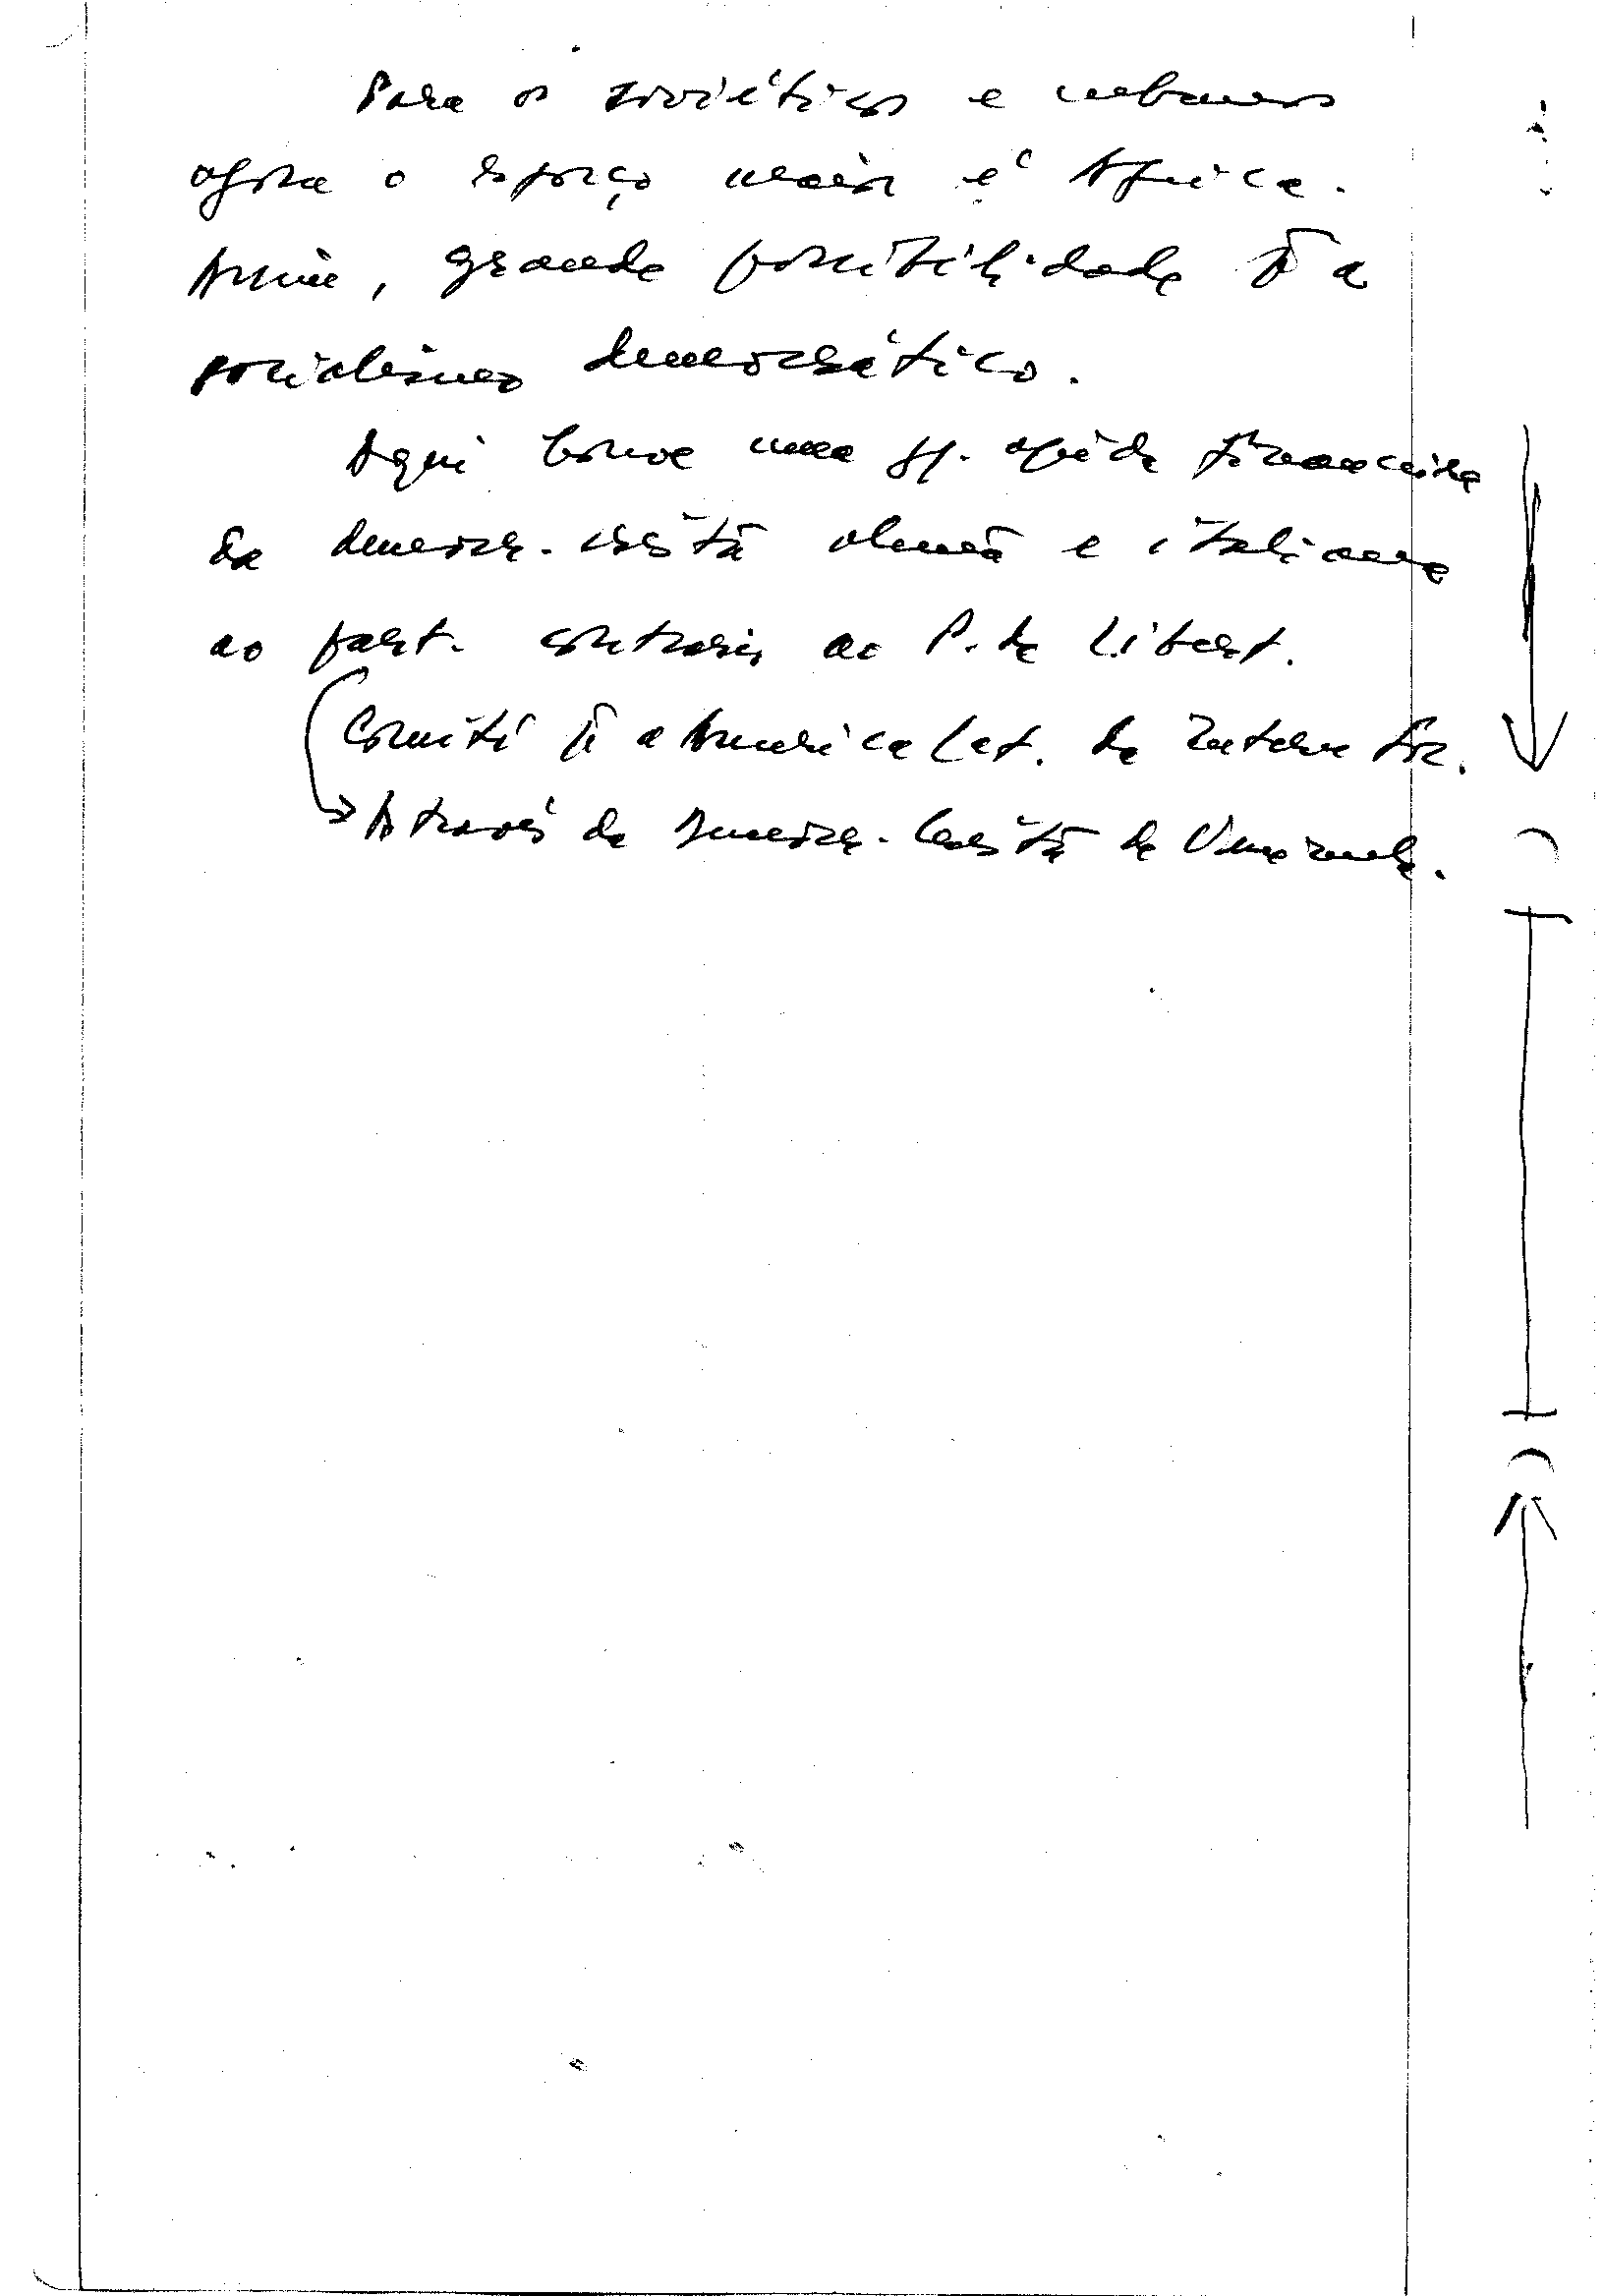 Para os soviéticos e cubanos
agora o esforço maior é Africa.
Assim, grande possibilidade p/ a
socialismo democrático.
Aqui houve uma gr. ajuda financeira
da democr. cristã alemã e italiana
ao part. contrario ao P. de Libert.
Comitê p/ a America Lat. da Intern. Soc.
Através da Democr. Cristã da Venezuela.